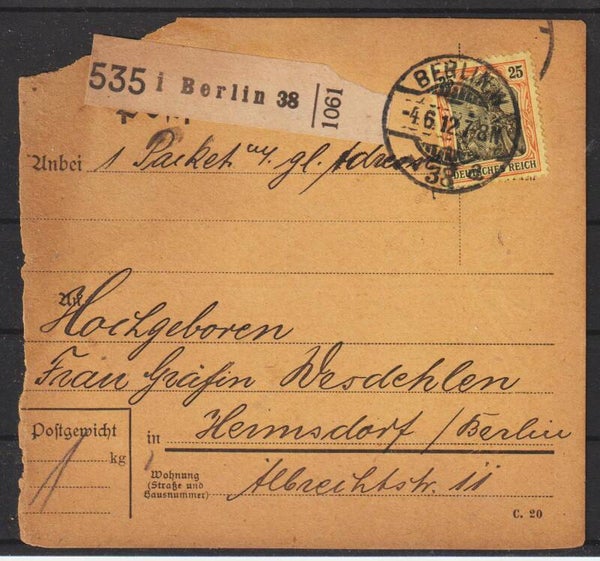 535 i Berlin 38
1061
BERLIN W
-4.6.12.7-8N
38 a
25
DEUTSCHES REICH
Anbei 1 Packet u. gl. Adresse
An
Hochgeboren
Frau Gräfin Wesdehlen
Postgewicht
kg
in Hermsdorf / Berlin
Wohnung
(Straße und
Hausnummer)
Albrechtstr. 11
C. 20